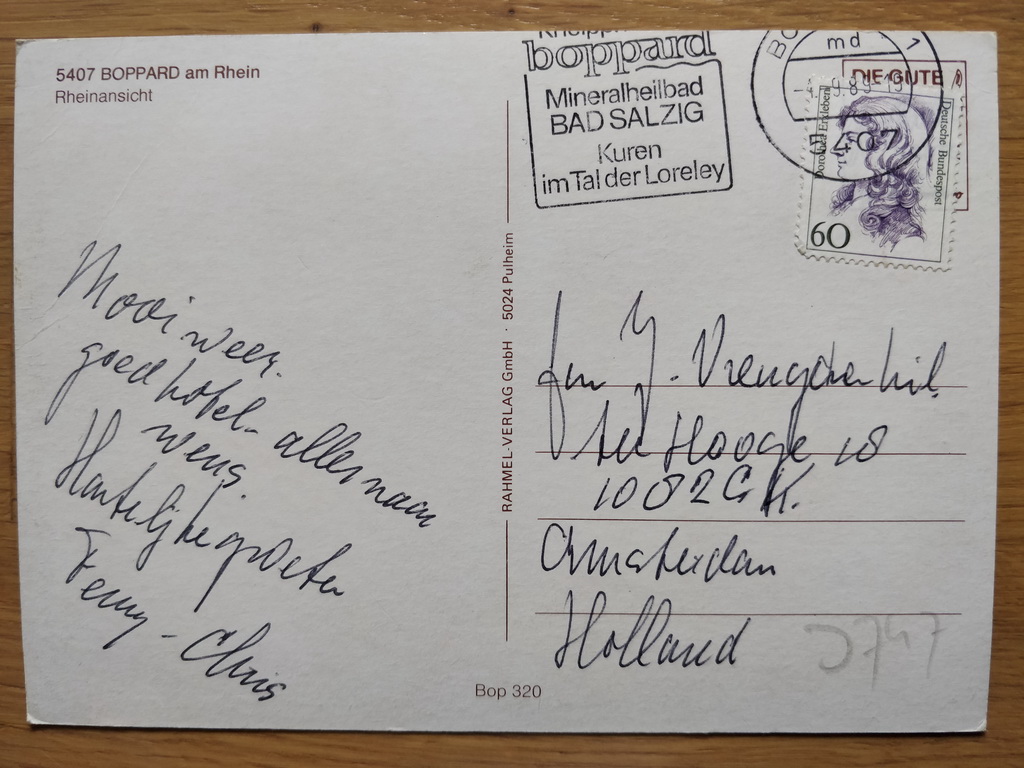 5407 BOPPARD am Rhein
Rheinansicht
boppard
Mineralheilbad
BAD SALZIG
Kuren
im Tal der Loreley
md
9.89-19
5407
DIE GUTE
Dorothea Erxleben
Deutsche Bundespost
60
Mooi weer.
goed hotel- alles naar
wens.
Hartelijke groeten
Femy - Chris
RAHMEL-VERLAG GmbH · 5024 Pulheim
Fam J. Vreugdenhil
Hooge 18
1082 GK.
Amsterdam
Holland
Bop 320